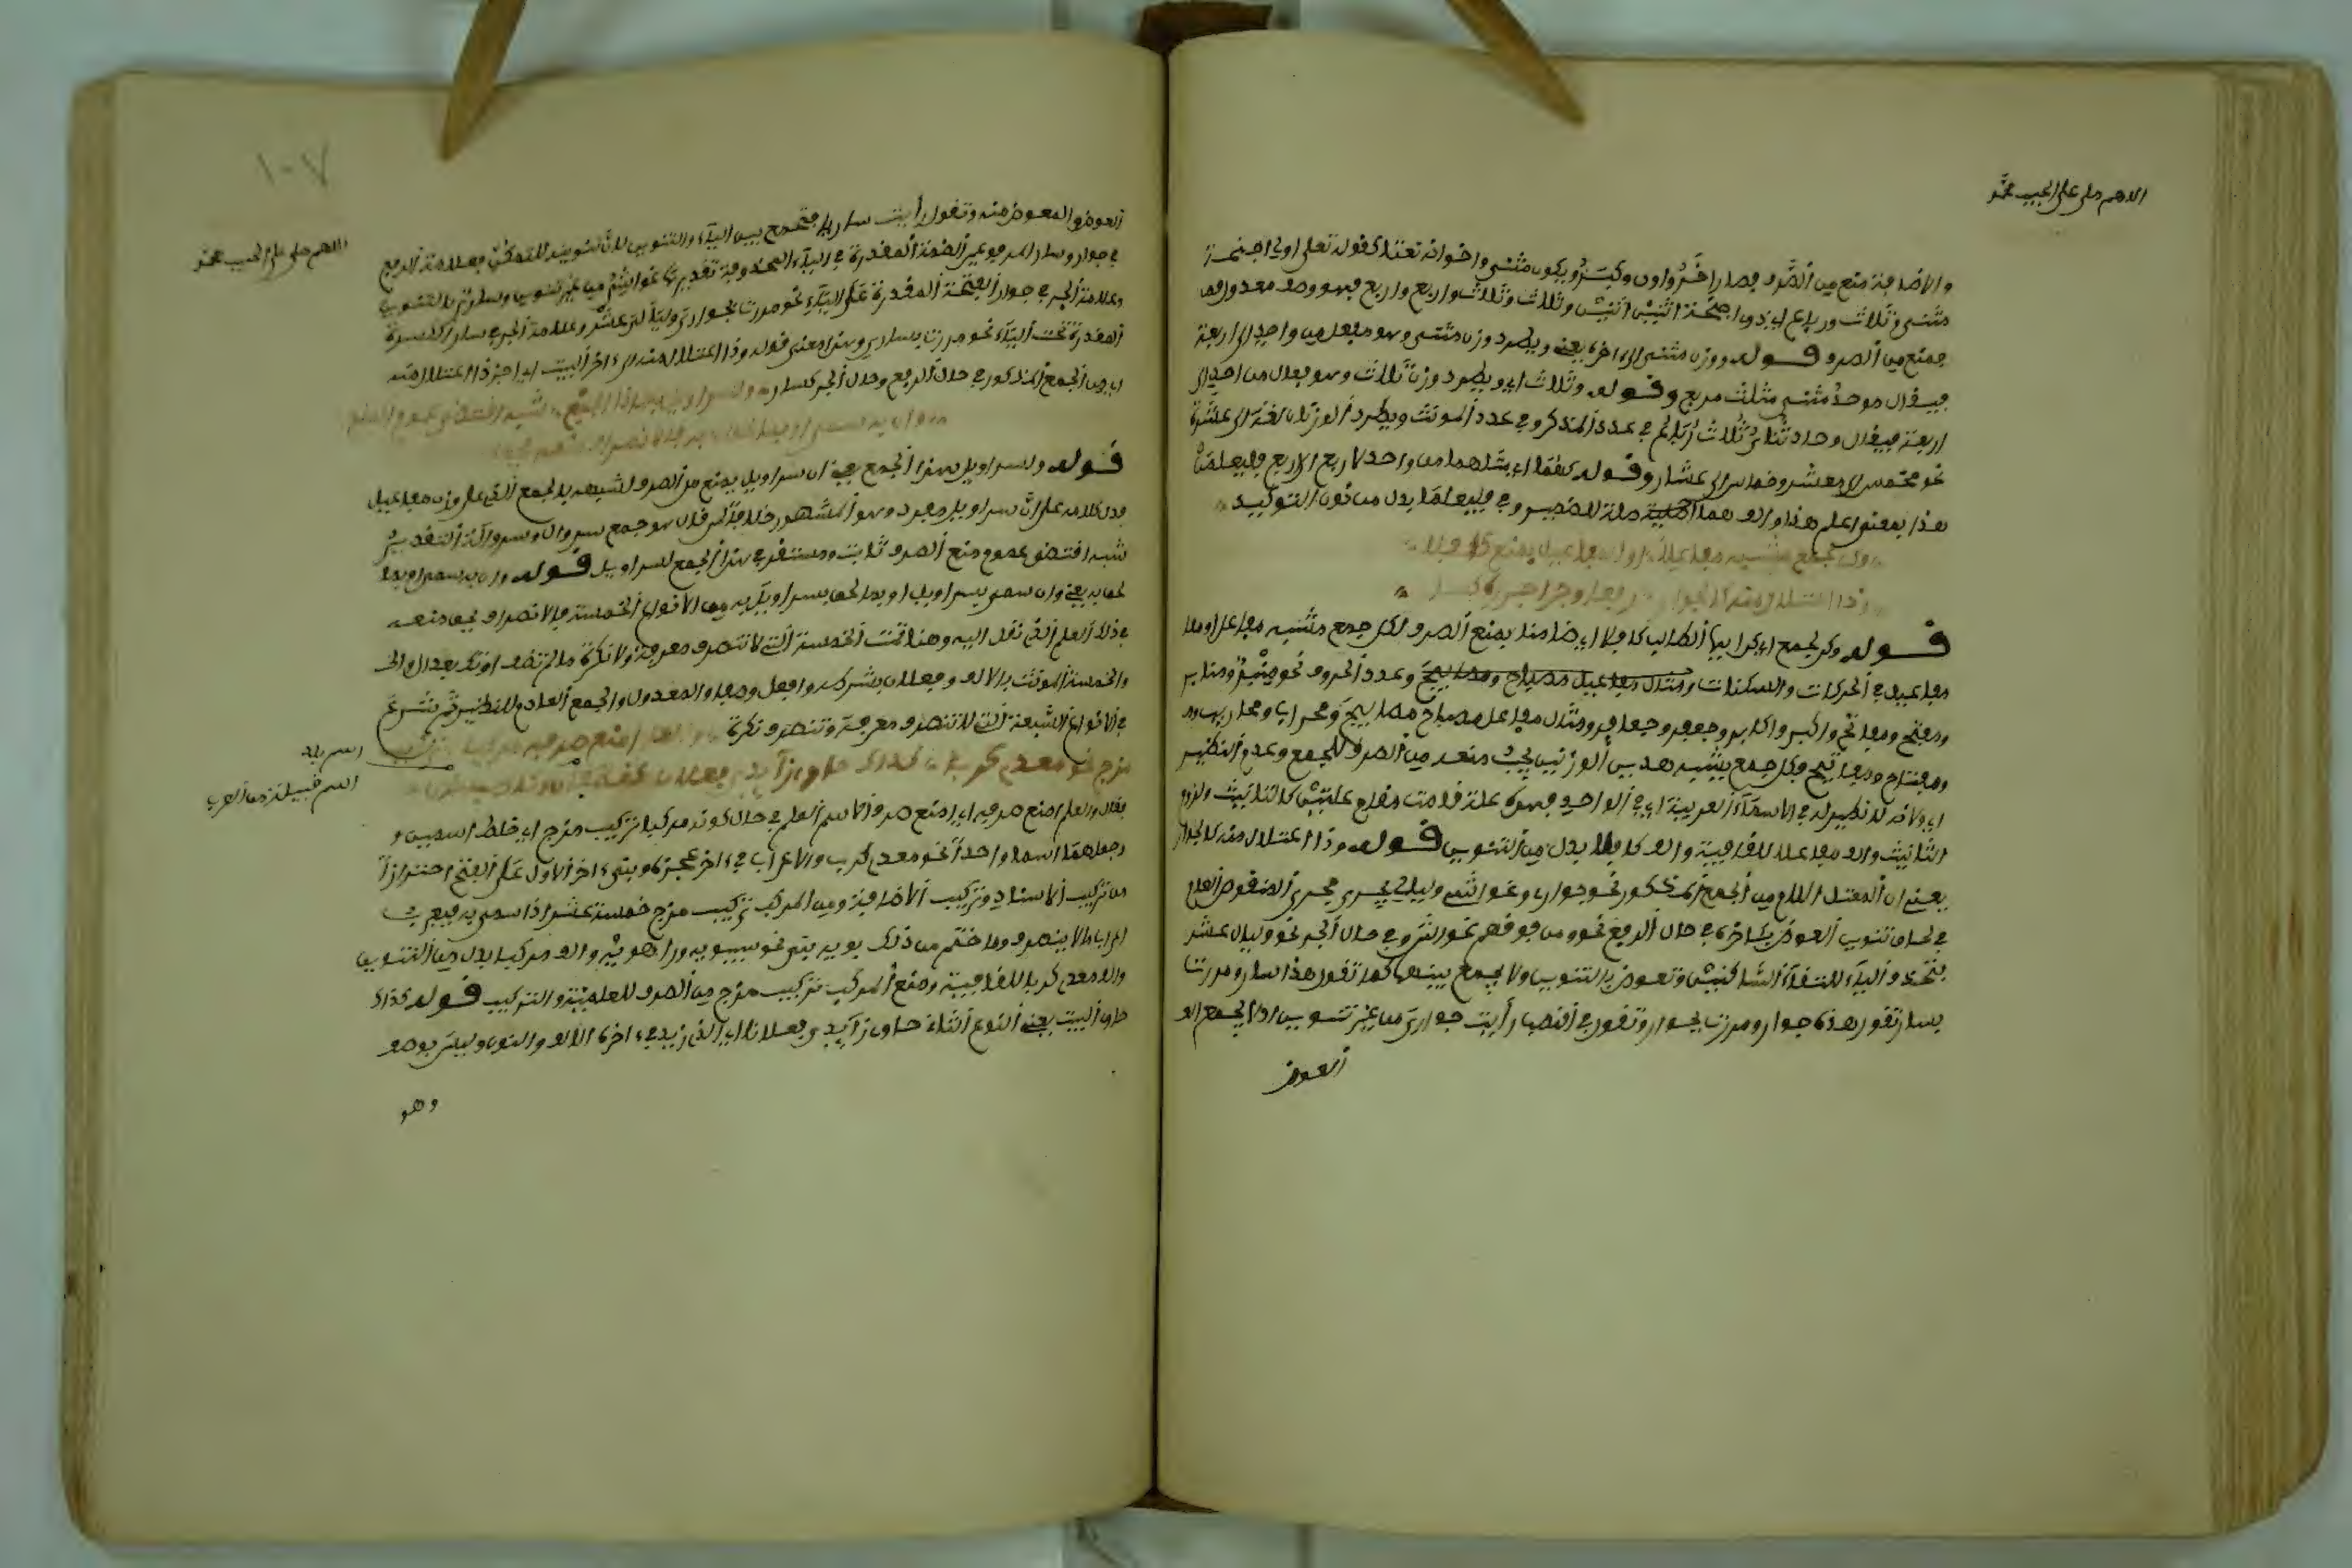 اللهم صل على الحبيب محمد
والاضافة منع من الصرف فصار اخر واول وكبر ويكون مثنى واخواته نعتا كقوله تعلى اولي اجنحة
مثنى وثلاث ورباع اي ذوي اجنحة اثنين اثنين وثلاث وثلاث واربع واربع فهو وصف معدول
فمنع من الصرف قوله ووزن مثنى الى اخره يعني ويطرد وزن مثنى وهو مفعل من واحد الى اربعة
فيقال موحد مثنى مثلث مربع وقوله وثلاث اي ويطرد وزن ثلاث وهو فعال من احد الى
اربعة فيقال وحاد ثناء ثلاث رباع في عدد المذكر وفي عدد المونث ويطرد الوزنان لغة الى عشرة
نحو مخمس الى معشر وخماس الى عشار وقوله كهما اي مثلهما من واحد لاربع الاربع فليعلما
هذا بمعنى اعلم هذا والف هما صلة للضمير وفي فليعلما بدل من نون التوكيد
وكن لجمع مشبه مفاعلا او المفاعيل بمنع كافلا
وذا اعتلال منه كالجوار رفعا وجرا اجره كسار
قوله وكن لجمع اي كن ايها الطالب كافلا اي ضامنا بمنع الصرف لكل جمع مشبه مفاعل او مفا
مفاعيل في الحركات والسكنات ومثال مفاعيل مصباح ومصابيح وعدد الحروف نحو
ومفتح ومفاتح واكبر واكابر وجعفر وجعافر ومثال مفاعل مصباح مصابيح ومحراب ومحاريب
ومفتاح ومفاتيح فكل جمع يشبه هذين الوزنين يجب منعه من الصرف للجمع وعدم النظير
اي ولانه لا نظير له في الاسماء العربية اي في الواحد فهو علة قامت مقام علتين كالتانيث ولزوم
التانيث والف مفاعلا للقافية والف كافلا بدل من التنوين قوله وذا اعتلال منه كالجوار
يعني ان المعتل اللام من الجمع المذكور نحو جوار وغواش وليالي يجرى مجرى المنقوص العام
في لحاق تنوين العوض باخره في حال الرفع نحو ومن فوقهم غواش وفي حال الجر نحو وليال عشر
بحذف الياء لالتقاء الساكنين وتعوض بالتنوين ولا يجمع بينهما كما تقول هذا سار ومررت
بسار تقول هذه جوار ومررت بجوار وتقول في النصب رأيت جواري من غير تنوين اذ لا يجمع
العوض
١٠٧
اللهم صل على الحبيب محمد
العوض والمعوض منه وتقول رأيت ساريا فتجمع بين الياء والتنوين لان تنوينه للتمكن فعلامة الرفع
في جوار وسار المرفوعين الضمة المقدرة في الياء المحذوفة
وعلامة الجر في جوار الفتحة المقدرة على الياء نحو مررت بجوار وليال عشر وعلامة الجر في سار الكسرة
المقدرة تحت الياء نحو مررت بسار وهذا معنى قوله وذا اعتلال منه الى اخر البيت اي اجر ذا اعتلال منه
اي من الجمع المذكور في حال الرفع وحال الجر كسار ولسراويل بهذا الجمع شبه اقتضى عموم المنع
وان به سمي او بما لحق به فالانصراف منعه يحق
قوله ولسراويل بهذا الجمع يعني ان سراويل يمنع من الصرف لشبهه بالجمع الذي على وزن مفاعيل
فدل كلامه على ان سراويل مفرد وهو المشهور خلافا لمن قال هو جمع سروال وسروالة التقدير
شبه اقتضى عموم منع الصرف ثابت ومستقر في هذا الجمع لسراويل قوله وان به سمي او بما
لحق به يعني وان سمي بسراويل او بما لحق بسراويل به من الانواع الخمسة فالانصراف يحق منعه
في ذلك العلم الذي نقل اليه وهنا تمت الخمسة التي لا تنصرف معرفة ولا نكرة ما لم تضف او تك بعد ال
والخمسة المونث بالالف وفعلان بشرطه وافعل وصفا والمعدول والجمع العادم للنظير ثم شرع
في الانواع السبعة التي لا تنصرف معرفة وتنصرف نكرة والعلم امنع صرفه مركبا تركيب
مزج نحو معدي كربا كذاك حاوي زائدي فعلانا كغطفان وكاصبهانا
اسم بلد
اسم قبيلة من العرب
فقال والعلم امنع صرفه اي امنع صرف الاسم العلم في حال كونه مركبا تركيب مزج اي خلط اسمين و
وجعلهما اسما واحدا نحو معدي كرب والاعراب في اخر عجزه وبني اخر الاول على الفتح احترازا
من تركيب الاسناد وتركيب الاضافة ومن المركب تركيب مزج خمسة عشر اذا سمي به فيعرب
اعراب ما لا ينصرف وما ختم من ذلك بويه بني نحو سيبويه وراهويه والف مركبا بدل من التنوين
والف معدي كربا للقافية ومنع المركب تركيب مزج من الصرف للعلمية والتركيب قوله كذاك
حاوي البيت يعني النوع الثاني حاوي زائدي فعلانا اي الذي زيد في اخره الالف والنون وليس بوصف
وهو